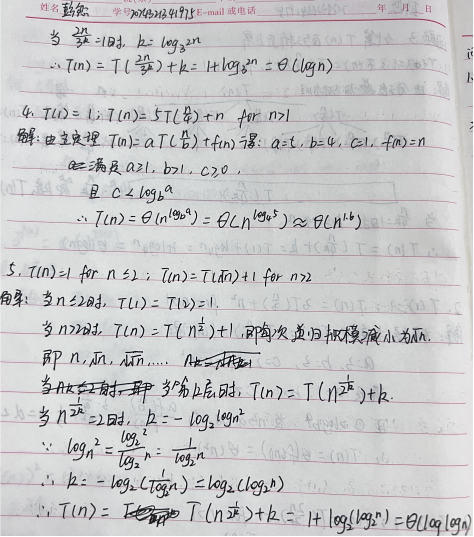 姓名 学号 2074321341975 E-mail 或电话 年 月 日
当 2n/3^k = 1时, k = log₃2n
∴ T(n) = T(2n/3^k) + k = 1 + log₃2n = Θ(logn)
4. T(1) = 1; T(n) = 5T(n/4) + n for n>1
解: 由主定理 T(n) = aT(n/b) + f(n) 得: a=t, b=4, c=1, f(n)=n
满足 a≥1, b>1, c≥0,
且 c < log_b a
∴ T(n) = Θ(n^(log_b a)) = Θ(n^(log₄5)) ≈ Θ(n^1.6)
5. T(n)=1 for n≤2; T(n)=T(√n)+1 for n>2
解: 当n≤2时, T(1) = T(2) = 1.
当n>2时, T(n) = T(n^(1/2)) + 1, 即每次递归规模减小为√n.
即 n, √n, √√n, .....
当第k层时, T(n) = T(n^(1/2^k)) + k.
当 n^(1/2^k) = 2时, k = -log₂log_n 2
∵ log_n 2 = log₂2/log₂n = 1/log₂n
∴ k = -log₂(1/log₂n) = log₂(log₂n)
∴ T(n) = T(n^(1/2^k)) + k = 1 + log₂(log₂n) = Θ(loglogn)